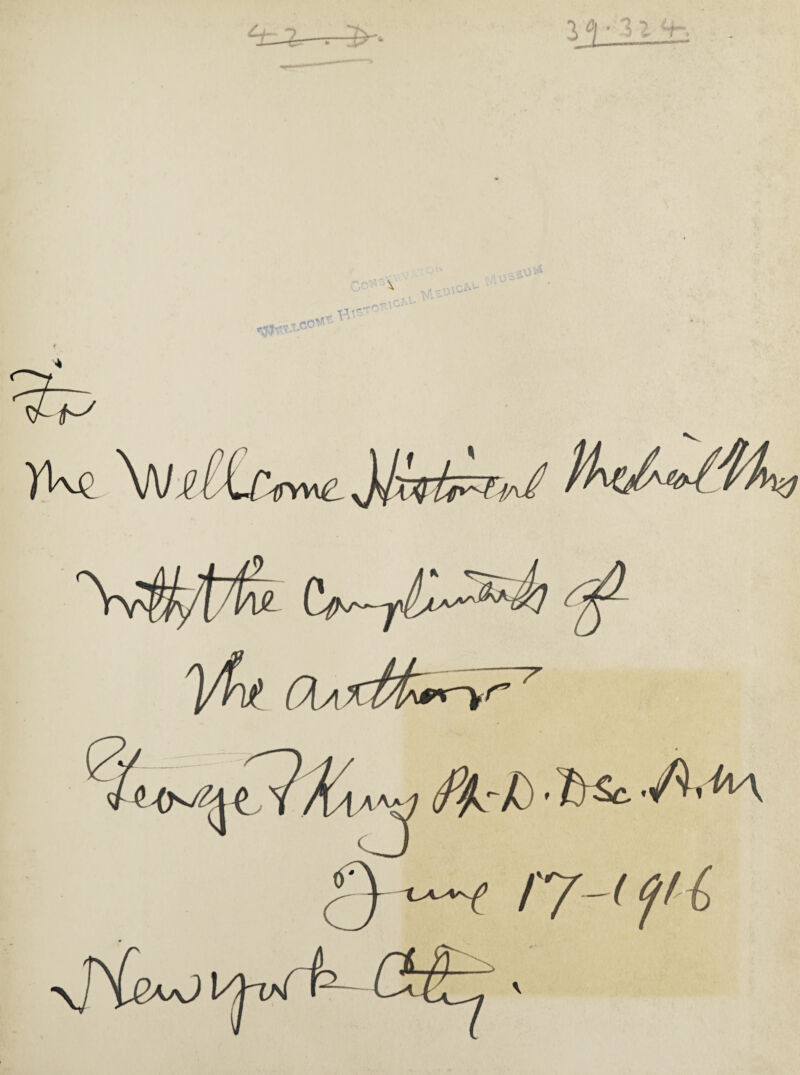 42.D.
39.324.
CONSERVATOR
WELLCOME HISTORICAL MEDICAL MUSEUM
To
The Wellcome Historical Medical Mus
with the Compliments of
The author
George F Kunz Ph-D. DSc. A.M
June 17-1916
New York City.